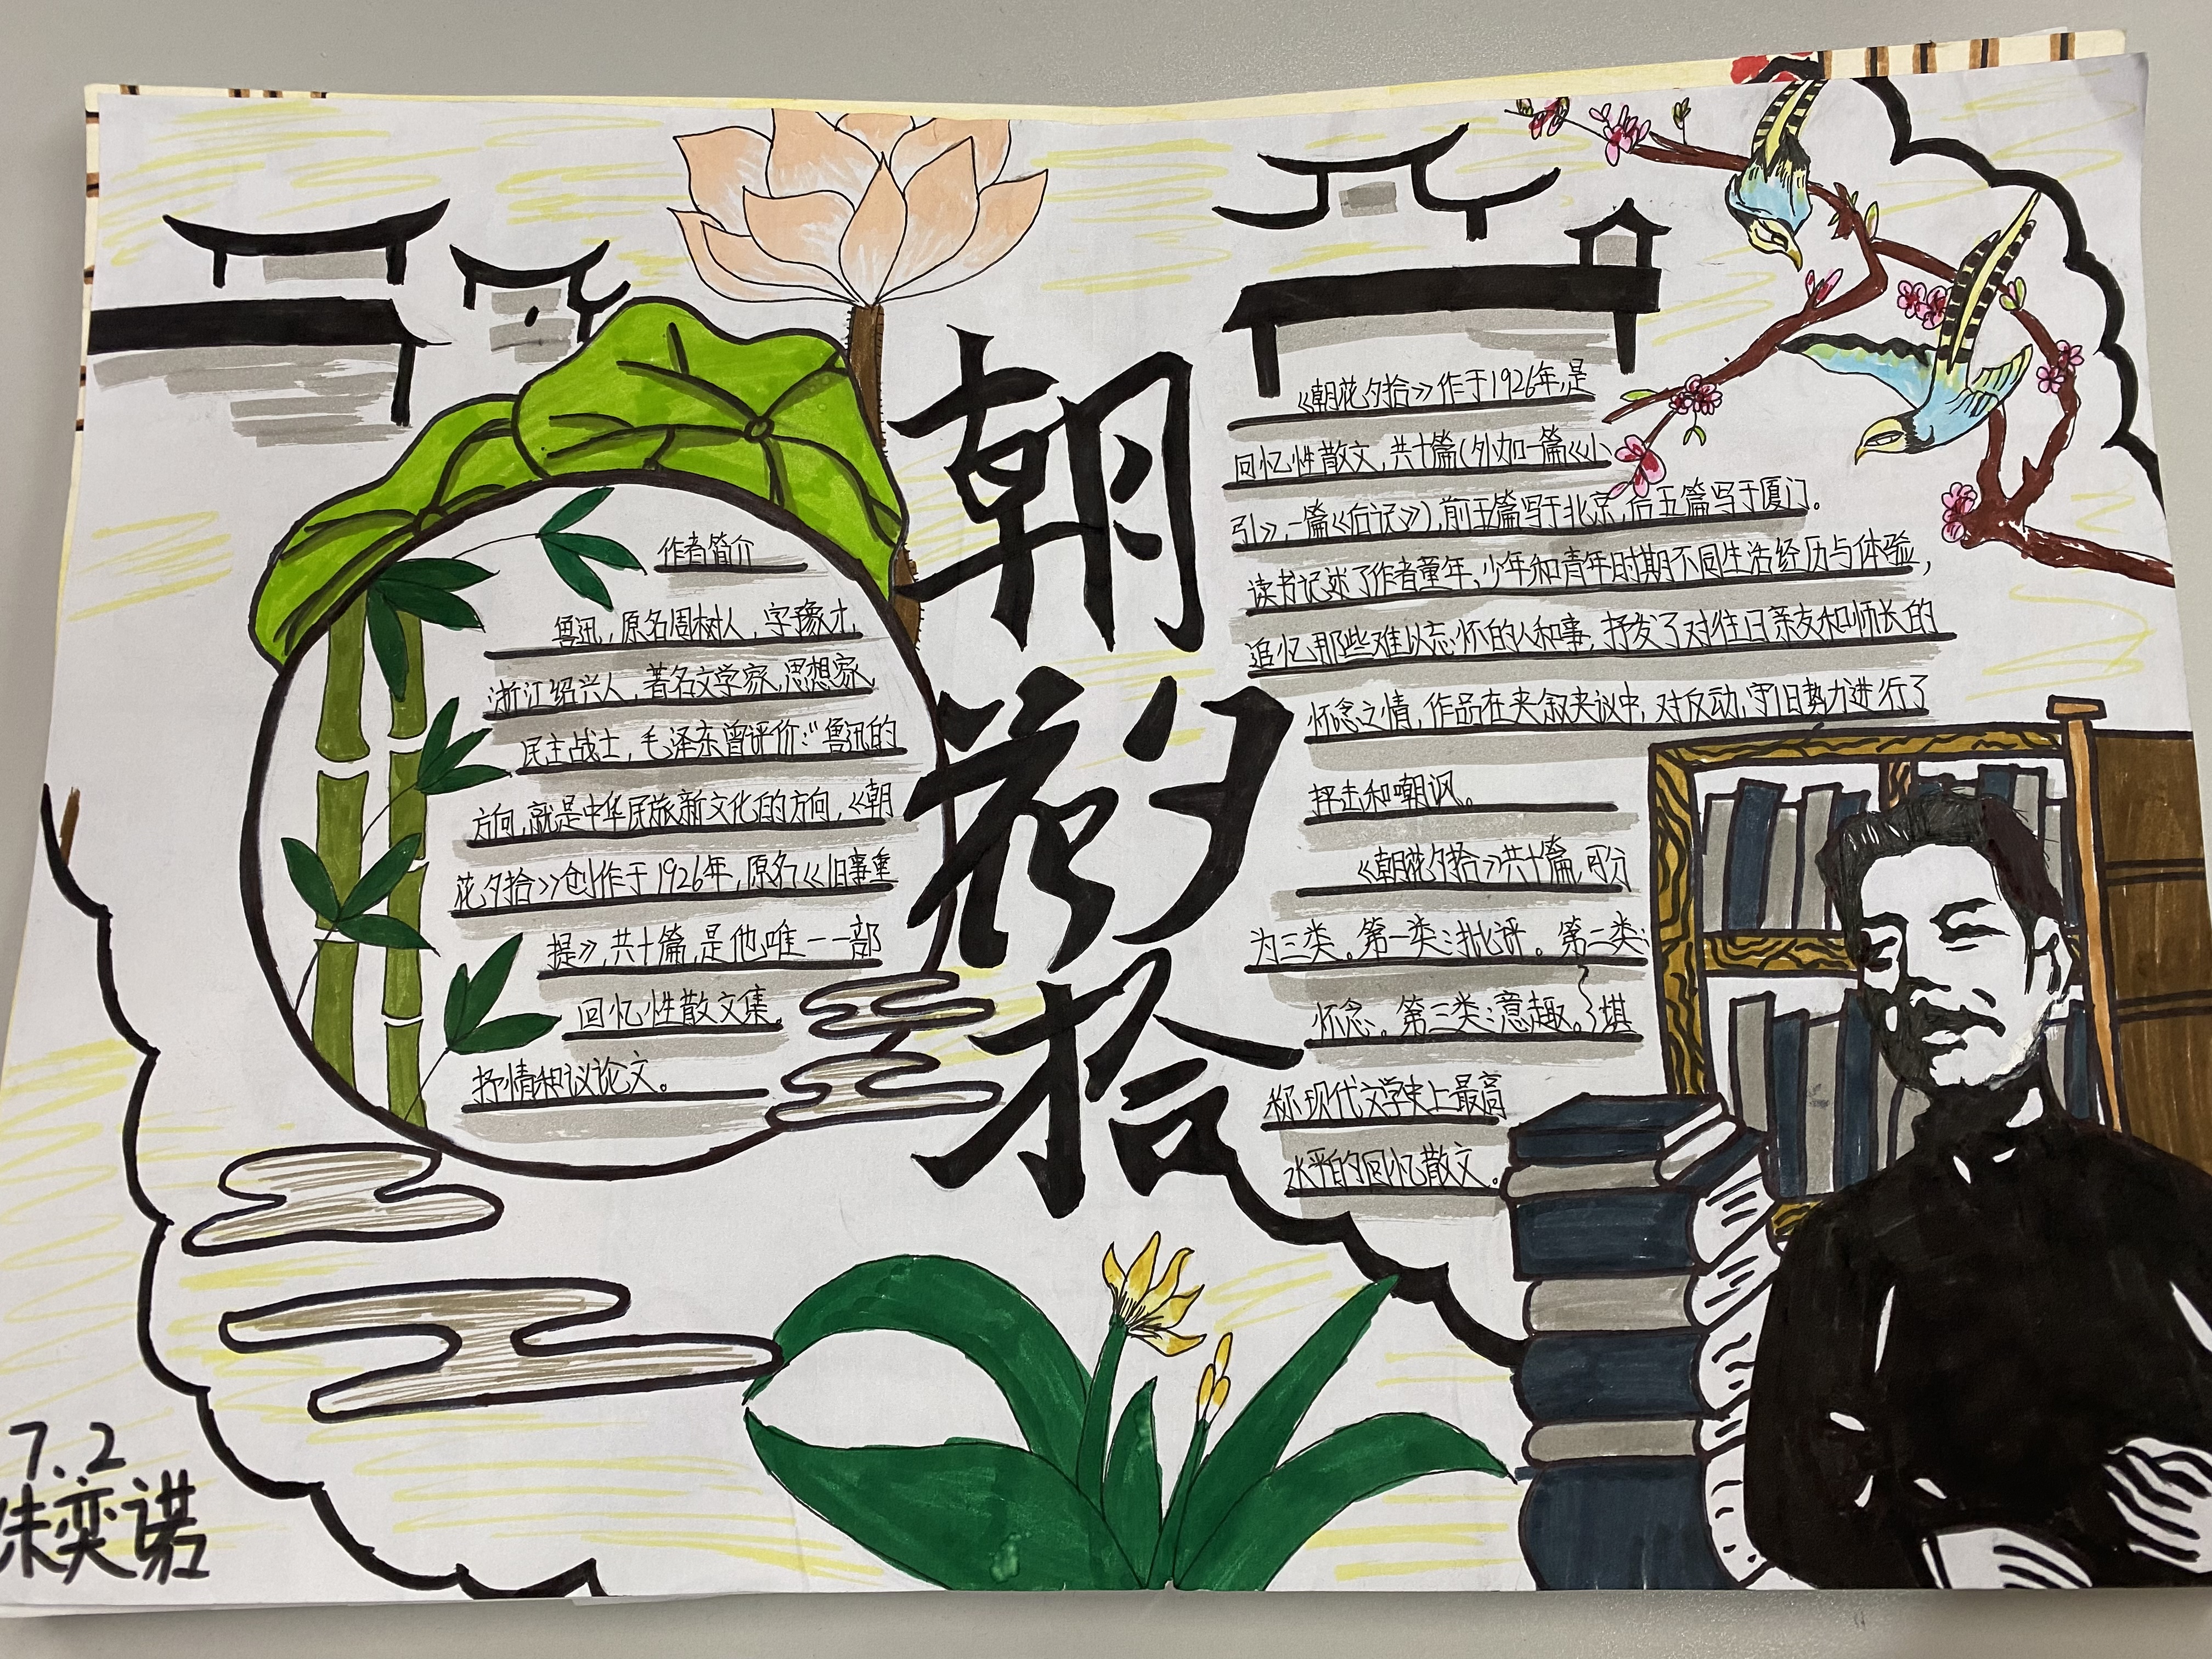 朝
花夕
拾
作者简介
鲁迅，原名周树人，字豫才，
浙江绍兴人，著名文学家，思想家，
民主战士，毛泽东曾评价：“鲁迅的
方向，就是中华民族新文化的方向，《朝
花夕拾》创作于1926年，原名《旧事重
提》，共十篇，是他唯一一部
回忆性散文集，
抒情和议论文。
《朝花夕拾》作于1926年，是
回忆性散文，共十篇（外加一篇《小
引》，一篇《后记》），前五篇写于北京，后五篇写于厦门。
读书记述了作者童年，少年和青年时期不同生活经历与体验，
追忆那些难以忘怀的人和事，抒发了对往日亲友和师长的
怀念之情，作品在夹叙夹议中，对反动，守旧势力进行了
抨击和嘲讽。
《朝花夕拾》共十篇，可分
为三类。第一类：批评。第二类：
怀念。第三类：意趣。堪
称现代文学史上最高
水平的回忆散文。
7.2
朱奕诺